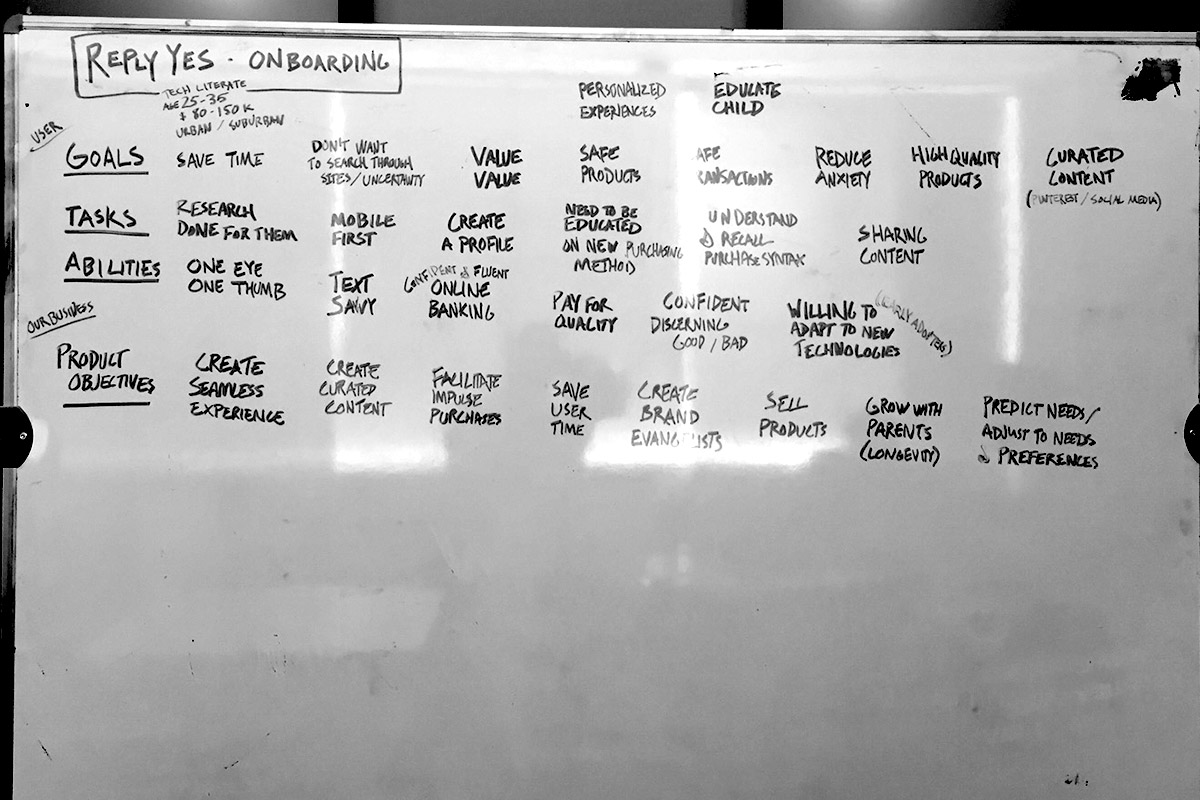 REPLY YES - ONBOARDING
TECH LITERATE
AGE 25-35
$ 80-150 K
URBAN / SUBURBAN
PERSONALIZED
EXPERIENCES
EDUCATE
CHILD
USER
GOALS
SAVE TIME
DON'T WANT
TO SEARCH THROUGH
SITES/UNCERTAINTY
VALUE
VALUE
SAFE
PRODUCTS
AFE
RANSACTIONS
REDUCE
ANXIETY
HIGH QUALITY
PRODUCTS
CURATED
CONTENT
(PINTEREST / SOCIAL MEDIA)
TASKS
RESEARCH
DONE FOR THEM
MOBILE
FIRST
CREATE
A PROFILE
NEED TO BE
EDUCATED
ON NEW PURCHASING
METHOD
UNDERSTAND
& RECALL
PURCHASE SYNTAX
SHARING
CONTENT
ABILITIES
ONE EYE
ONE THUMB
TEXT
SAVVY
CONFIDENT & FLUENT
ONLINE
BANKING
PAY FOR
QUALITY
CONFIDENT
DISCERNING
GOOD / BAD
WILLING TO
ADAPT TO NEW
TECHNOLOGIES
(EARLY ADOPTERS)
OUR BUSINESS
PRODUCT
OBJECTIVES
CREATE
SEAMLESS
EXPERIENCE
CREATE
CURATED
CONTENT
FACILITATE
IMPULSE
PURCHASES
SAVE
USER
TIME
CREATE
BRAND
EVANGELISTS
SELL
PRODUCTS
GROW WITH
PARENTS
(LONGEVITY)
PREDICT NEEDS/
ADJUST TO NEEDS
& PREFERENCES